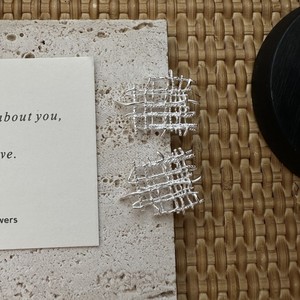 about you,
ve.
wers